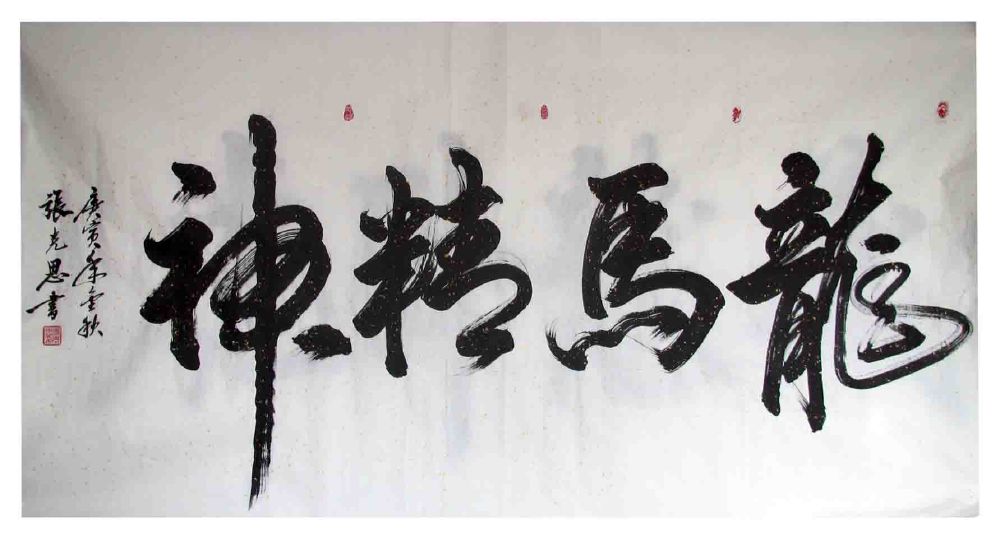 龍馬精神
庚寅年金秋
張克思書